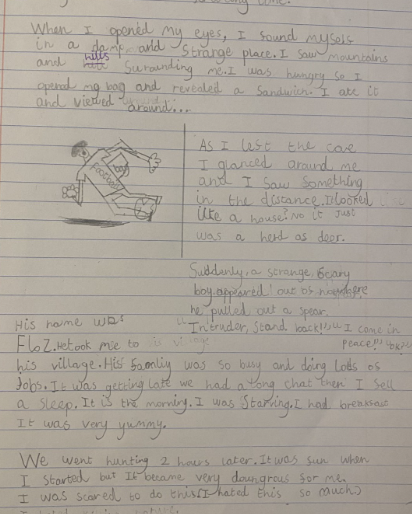 When I opened my eyes, I sound mysols
in a damp and strange place. I saw mountains
and hills surounding me. I was hungry so I
opend my bag and revealed a sandwich. I ate it
and viewed around...
As I lest the cave
I glanced around me
and I saw something
in the distance. It looked
like a house? No it just
was a herd os deer.
Suddenly, a strange, scary
boy appeared out os nowhere
he pulled out a spear.
Intruder, stand back!
I come in
peace
His name was
Floz. He took me to
his village. His samliy was so busy and doing lods os
Jobs. It was getting late we had a long chat then I sell
a sleep. It is the morning. I was starving. I had breakfast
It was very yummy.
We went hunting 2 hours later. It was sun when
I started but It became very doungrous for me.
I was scared to do this (I hated this so much)